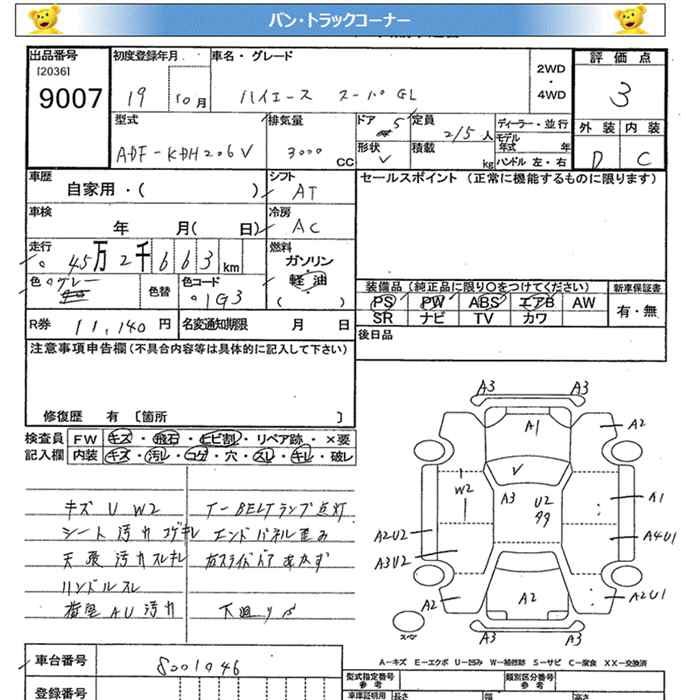 バン・トラックコーナー
出品番号 初度登録年月 車名・グレード 評価点
[2036]
9007 19 10月 ハイエース スーパーGL 2WD・4WD 3
型式 排気量 ドア 5 定員 2/5人 ディーラー・並行 外装 内装
モデル年式 年
ADF-KDH206V 3000 CC 形状 V 積載 kg ハンドル 左・右 D C
車歴 シフト セールスポイント (正常に機能するものに限ります)
自家用・( ) AT
車検 冷房
年 月( 日) AC
走行 燃料
45万2千663km ガソリン
軽油
色 グレー 色替 色コード 1G3 ( )
装備品 (純正品に限り○をつけてください) 新車保証書
PS PW ABS エアB AW 有・無
SR ナビ TV カワ
R券 11,140円 名変通知期限 月 日
後日品
注意事項申告欄(不具合内容等は具体的に記入して下さい)
修復歴 有 [箇所 ]
検査員 FW キズ・飛石・ヒビ割・リペア跡・×要
記入欄 内装 キズ・汚レ・コゲ・穴・スレ・キレ・破レ
キズ U W2 T-BELTランプ点灯
シート汚れコゲキレ エンドパネル歪み
天張汚れスレキレ 右スライドドアあかず
ハンドルスレ
荷室AU汚れ 下廻りS
A3 A3
A1 A2
V
W2 A3 U2 A1
A2U2 A4U1
A3U2
A2 A2 A2U1
A3 A3
A-キズ E-エクボ U-凹み W-補修跡 S-サビ C-腐食 XX-交換済
車台番号 8001946
型式指定番号 参考 類別区分番号 参考
登録番号 車庫証明用 長さ 幅 高さ